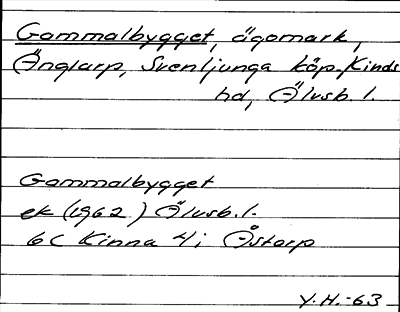 Gammalbygget, ägomark,
Änglarp, Svenljunga köp, Kinds
hd, Älvsb. l.
Gammalbygget
ek (1962) Älvsb. l.
6C Kinna 4 i Åstarp
Y. H. -63